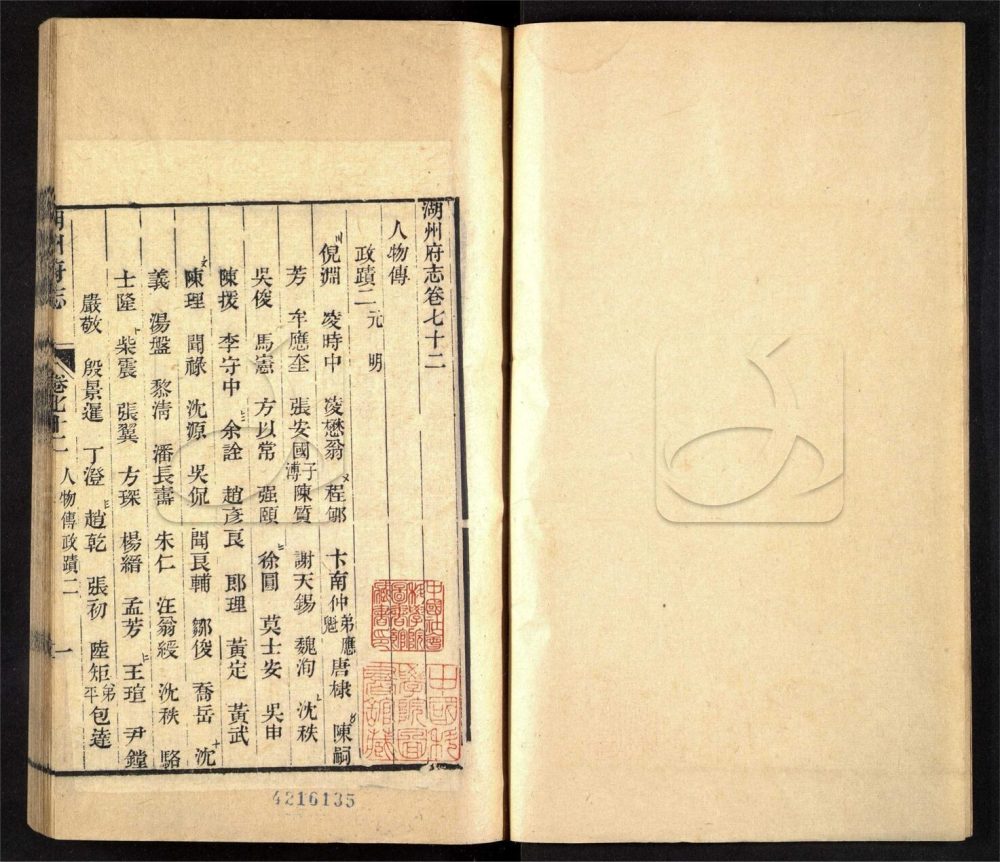 湖州府志卷七十二
人物傳
政蹟二 元 明
倪淵 凌時中 凌懋翁 程郇 卞南仲 弟應魁 唐棣 陳嗣
芳 牟應奎 張安國 子溥 陳質 謝天錫 魏洵 沈秩
吳俊 馬憲 方以常 强頤 徐圓 莫士安 吳申
陳援 李守中 余詮 趙彥良 郎理 黃定 黃武
陳理 聞祿 沈源 吳侃 聞良輔 鄒俊 喬岳 沈
義 湯盤 黎清 潘長壽 朱仁 汪翁綬 沈秩 駱
士隆 柴震 張翼 方琛 楊縉 孟芳 王瑄 尹鏜
嚴敬 殷景暹 丁澄 趙乾 張初 陸矩 弟平 包達
湖州府志 卷七十二 人物傳政蹟二 一
中國社會科學院圖書館藏書印
中國科學院圖書館藏
4216135